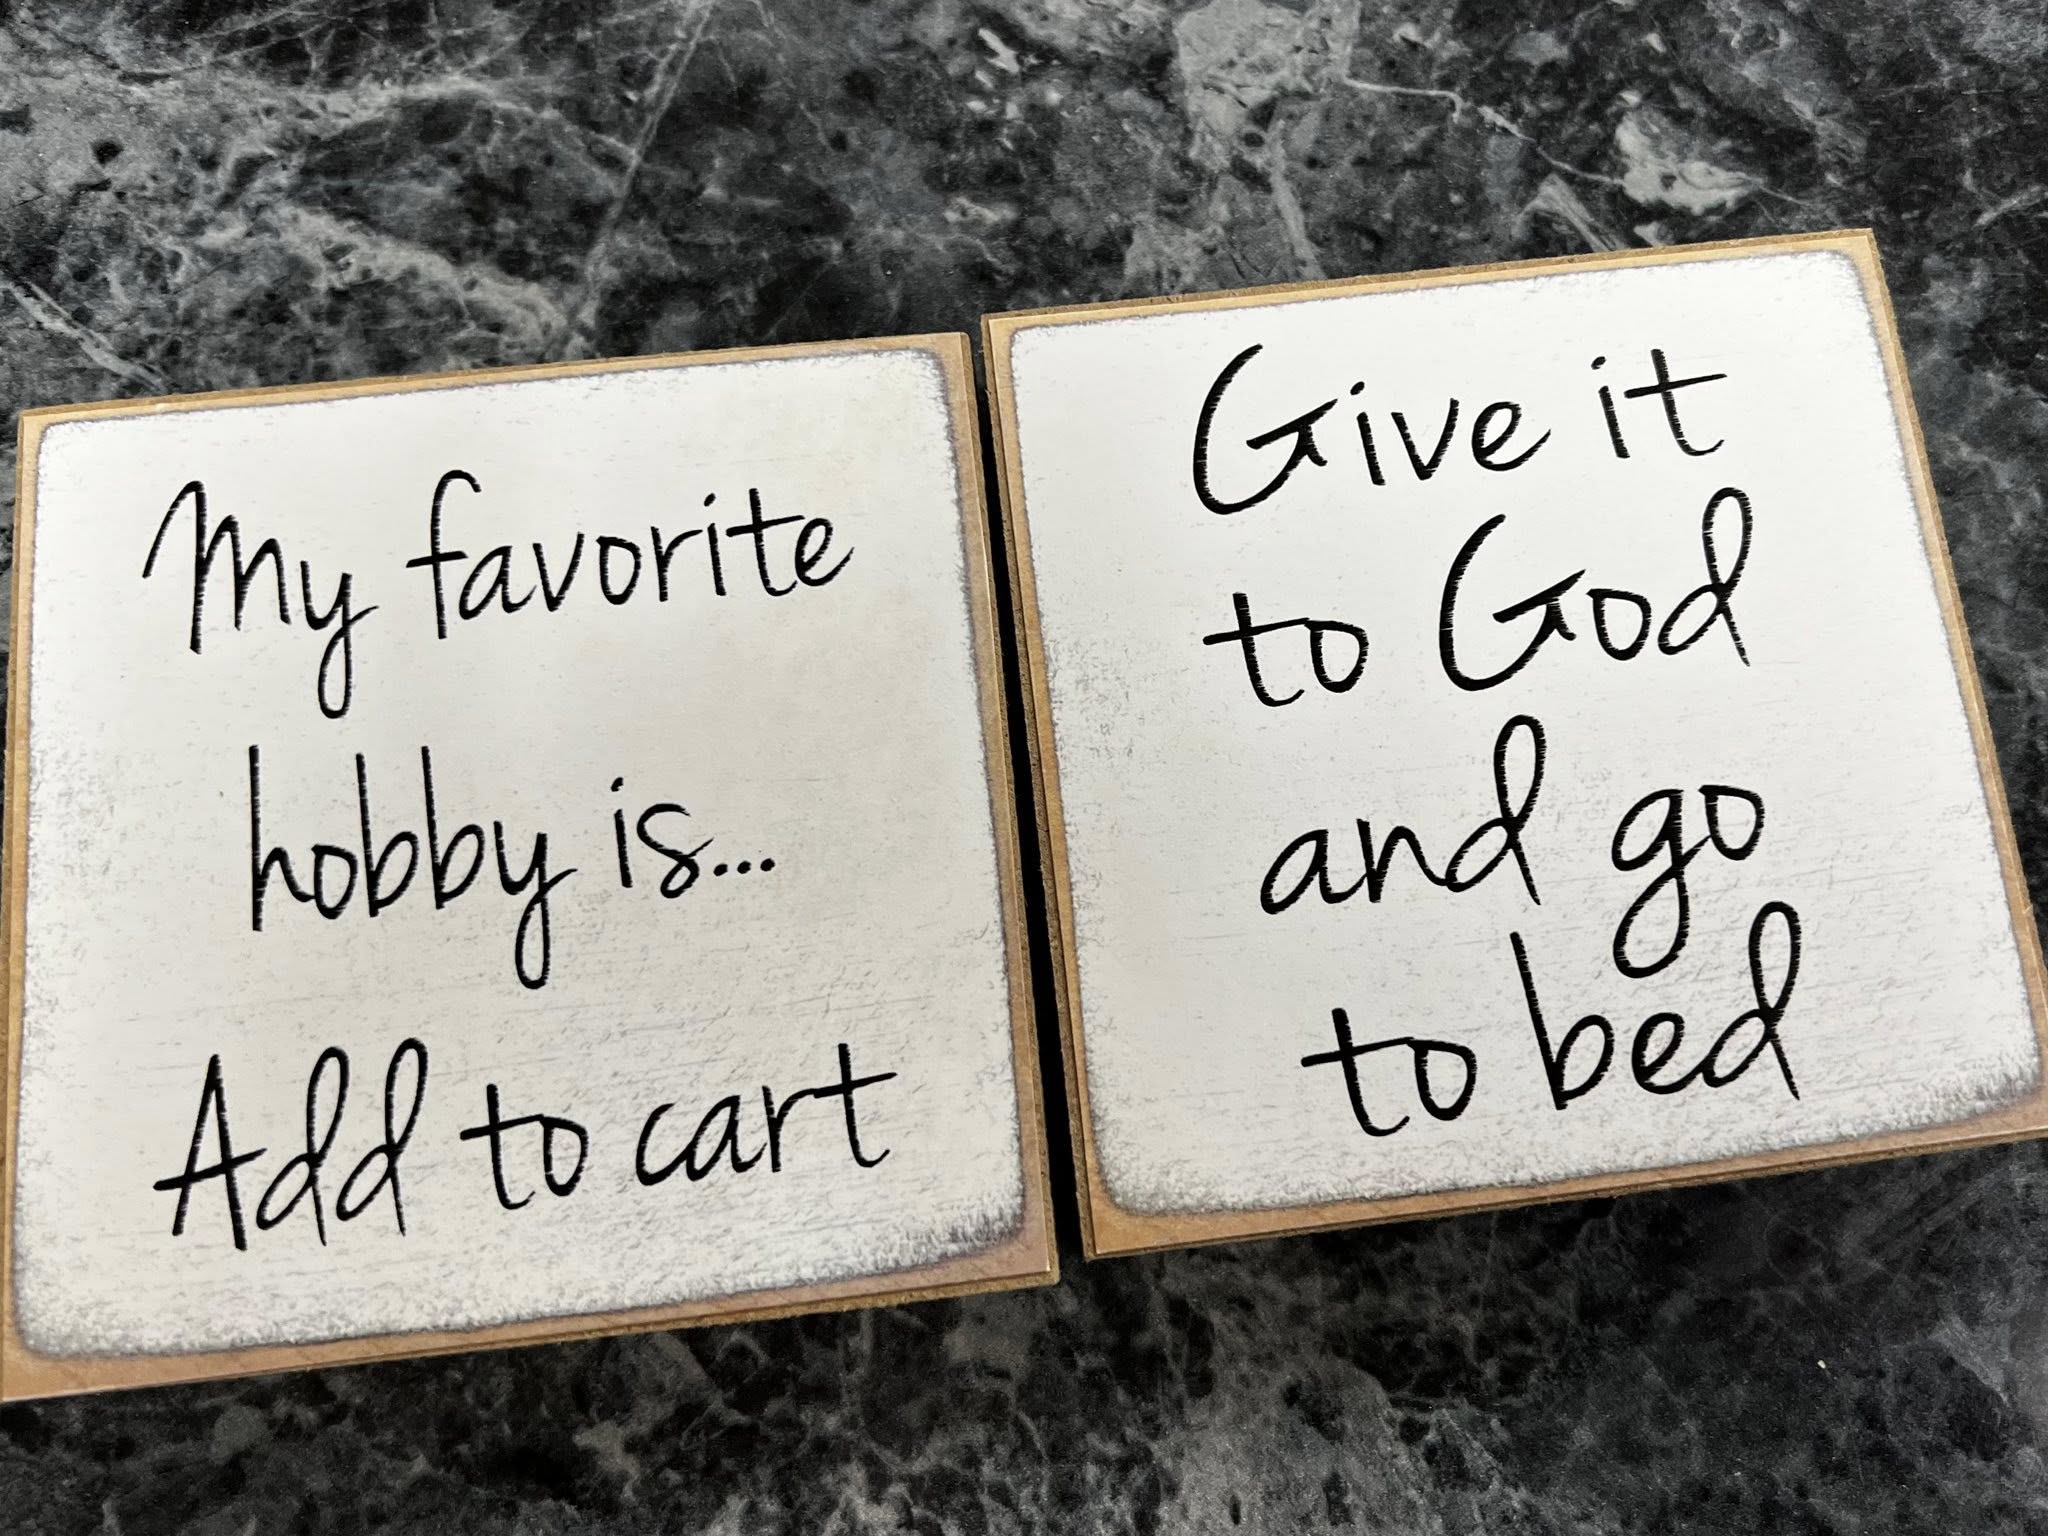 My favorite
hobby is...
Add to cart
Give it
to God
and go
to bed